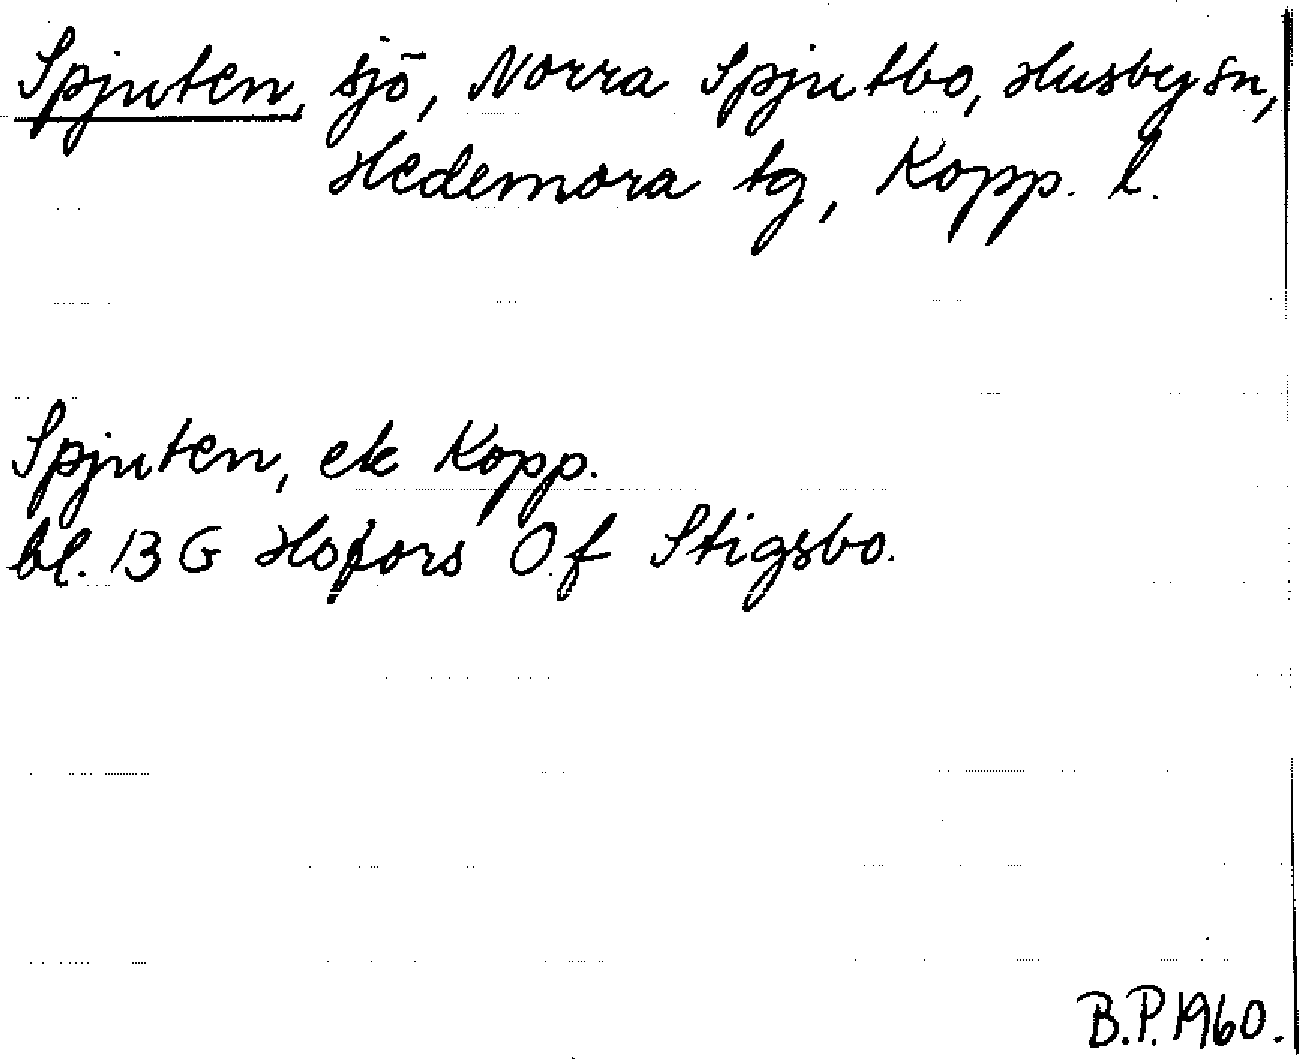 Spjuten, sjö, Norra Spjutbo, Husby sn,
Hedemora tg, Kopp. l.
Spjuten, ek Kopp.
bl. 13 G Hofors O.f Stigsbo.
B.P. 1960.